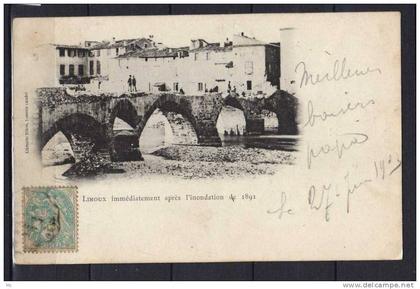 Meilleurs
baisers
papa
Le 27 juin 190
LIMOUX immédiatement après l'inondation de 1891